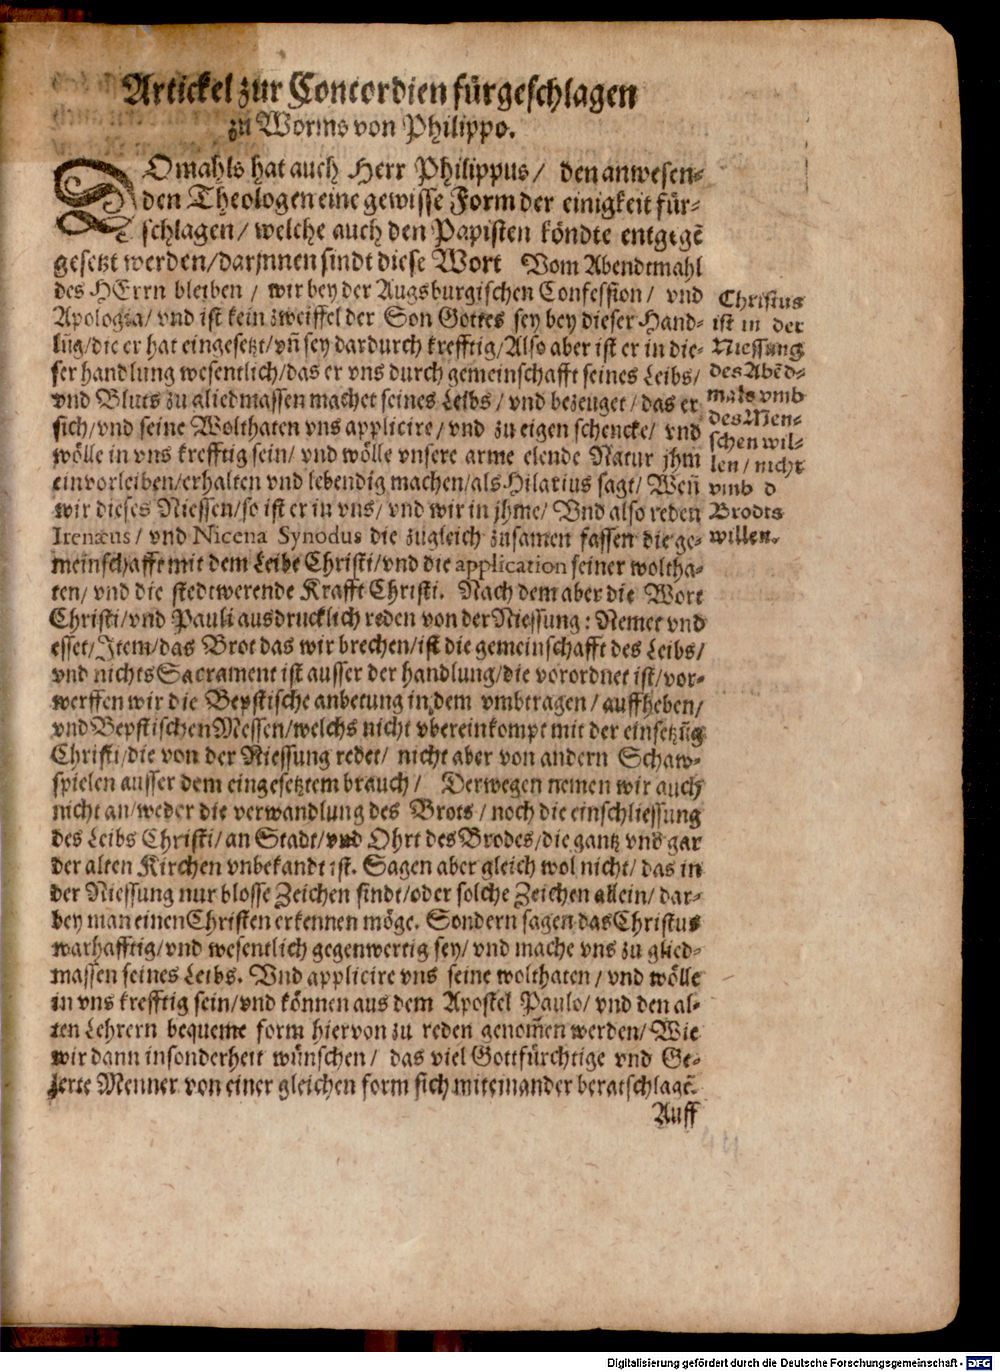 Artickel zur Concordien fürgeschlagen
zu Worms von Philippo.
DOmahls hat auch Herr Philippus / den anwesen-
den Theologen eine gewisse Form der einigkeit für-
schlagen / welche auch den Papisten köndte entgegē
gesetzt werden / darjnnen sindt diese Wort Vom Abendtmahl
des HErrn bleiben / wir bey der Augsburgischen Confession / vnd
Apologia / vnd ist kein zweiffel der Son Gottes sey bey dieser Hand-
lūg / die er hat eingesetzt / vñ sey dardurch krefftig / Also aber ist er in die-
ser handlung wesentlich / das er vns durch gemeinschafft seines Leibs /
vnd Bluts zu gliedmassen machet seines Leibs / vnd bezeuget / das er
sich / vnd seine Wolthaten vns applicire / vnd zu eigen schencke / vnd
wölle in vns krefftig sein / vnd wölle vnsere arme elende Natur jhm
einvorleiben / erhalten vnd lebendig machen / als Hilarius sagt / Weñ
wir dieses Niessen / so ist er in vns / vnd wir in jhme / Vnd also reden
Irenæus / vnd Nicena Synodus die zugleich zusamen fassen die ge-
meinschafft mit dem Leibe Christi / vnd die application seiner woltha-
ten / vnd die stedtwerende Krafft Christi. Nach dem aber die Wort
Christi / vnd Pauli ausdrucklich reden von der Niessung : Nemet vnd
esset / Item / das Brot das wir brechen / ist die gemeinschafft des Leibs /
vnd nichts Sacrament ist ausser der handlung / die vorordnet ist / vor-
werffen wir die Bepstische anbetung in dem vmbtragen / auffheben /
vnd Bepstischen Messen / welchs nicht vbereinkompt mit der einsetzūg
Christi / die von der Niessung redet / nicht aber von andern Schaw-
spielen ausser dem eingesetztem brauch / Derwegen nemen wir auch
nicht an / weder die verwandlung des Brots / noch die einschliessung
des Leibs Christi / an Stadt / vnd Ohrt des Brodes / die gantz vnd gar
der alten Kirchen vnbekandt ist. Sagen aber gleich wol nicht / das in
der Niessung nur blosse Zeichen sindt / oder solche Zeichen allein / dar-
bey man einen Christen erkennen möge. Sondern sagen das Christus
warhafftig / vnd wesentlich gegenwertig sey / vnd mache vns zu glied-
massen seines Leibs. Vnd applicire vns seine wolthaten / vnd wölle
in vns krefftig sein / vnd können aus dem Apostel Paulo / vnd den al-
ten Lehrern bequeme form hiervon zu reden genom̄en werden / Wie
wir dann insonderheit wünschen / das viel Gottfürchtige vnd Ge-
lerte Menner von einer gleichen form sich miteinander beratschlagē.
Auff
Christus
ist in der
Niessung
des Abēd-
mals vmb
des Men-
schen wil-
len / nicht
vmb d
Brodts
willen.
Digitalisierung gefördert durch die Deutsche Forschungsgemeinschaft - DFG